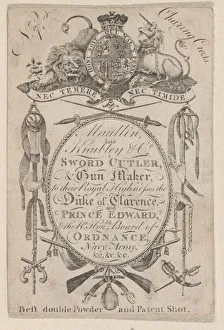 No. 7
Charing Cross.
NEC TEMERE NEC TIMIDE
Maullin,
Knubley & Co.
SWORD CUTLER,
& Gun Maker,
to their Royal Highnesses the
Duke of Clarence,
and
PRINCE EDWARD,
& the Rt. Honble. Board of
ORDNANCE,
Navy, Army,
&c. &c. &c.
Best double Powder and Patent Shot.